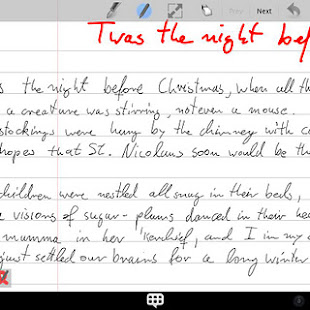 Prev Next
Twas the night bef
s the night before Christmas, when all th
a creature was stirring, not even a mouse.
stockings were hung by the chimney with c
hopes that St. Nicolaus soon would be th
children were nestled all snug in their beds,
visions of sugar-plums danced in their hea
mumma in her 'kerchief, and I in my c
just settled our brains for a long winter